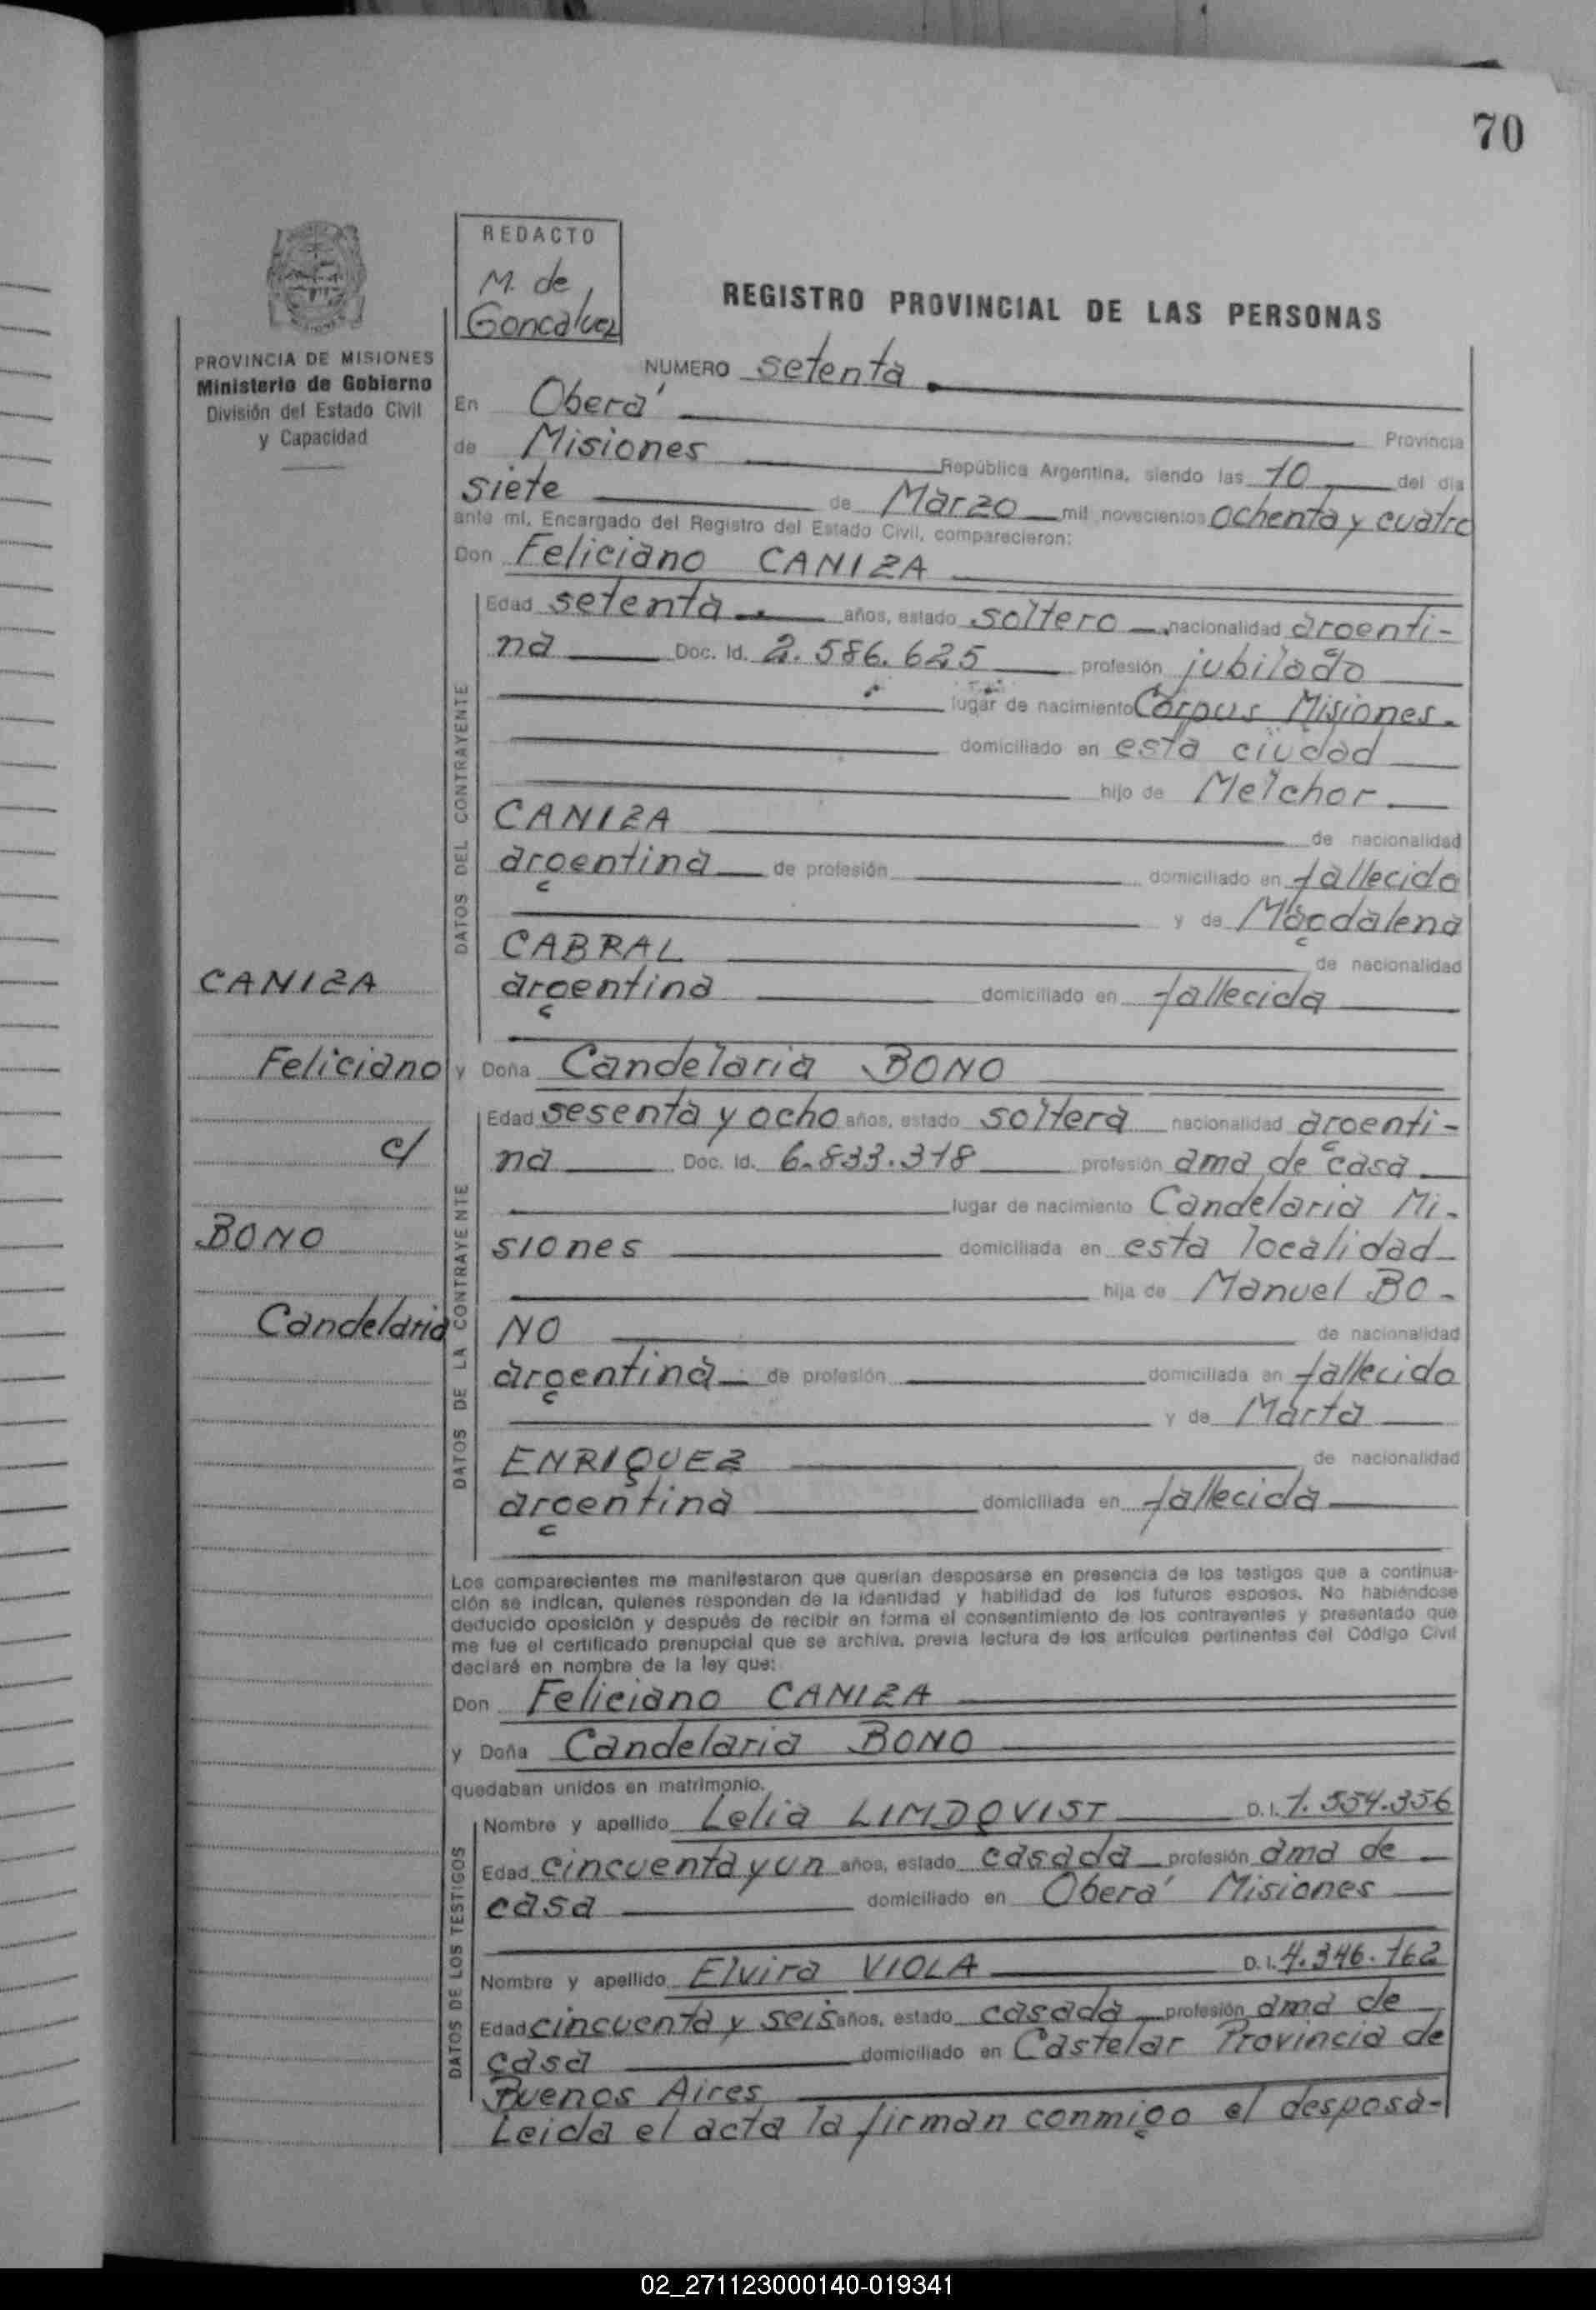 70
REDACTO
M. de
Goncalvez
REGISTRO PROVINCIAL DE LAS PERSONAS
PROVINCIA DE MISIONES
Ministerio de Gobierno
División del Estado Civil
y Capacidad
NUMERO setenta
En Oberá Provincia
de Misiones República Argentina, siendo las 10 del día
siete de Marzo mil novecientos ochenta y cuatro
ante mí, Encargado del Registro del Estado Civil, comparecieron:
Don Feliciano CANIZA
DATOS DEL CONTRAYENTE
Edad setenta años, estado soltero nacionalidad argenti-
na Doc. Id. 2.586.625 profesión jubilado
lugar de nacimiento Corpus Misiones.
domiciliado en esta ciudad
hijo de Melchor
CANIZA de nacionalidad
argentina de profesión domiciliado en fallecido
y de Magdalena
CABRAL de nacionalidad
argentina domiciliado en fallecida
CANIZA
Feliciano
c/
BONO
Candelaria
y Doña Candelaria BONO
DATOS DE LA CONTRAYENTE
Edad sesenta y ocho años, estado soltera nacionalidad argenti-
na Doc. Id. 6.833.318 profesión ama de casa
lugar de nacimiento Candelaria Mi-
siones domiciliada en esta localidad
hija de Manuel BO-
NO de nacionalidad
argentina de profesión domiciliada en fallecido
y de Marta
ENRIQUEZ de nacionalidad
argentina domiciliada en fallecida
Los comparecientes me manifestaron que querían desposarse en presencia de los testigos que a continua-
ción se indican, quienes responden de la identidad y habilidad de los futuros esposos. No habiéndose
deducido oposición y después de recibir en forma el consentimiento de los contrayentes y presentado que
me fue el certificado prenupcial que se archiva, previa lectura de los artículos pertinentes del Código Civil
declaré en nombre de la ley que:
Don Feliciano CANIZA
y Doña Candelaria BONO
quedaban unidos en matrimonio.
DATOS DE LOS TESTIGOS
Nombre y apellido Lelia LIMDQVIST D.I. 1.554.356
Edad cincuenta y un años, estado casada profesión ama de
casa domiciliado en Oberá Misiones
Nombre y apellido Elvira VIOLA D.I. 4.346.162
Edad cincuenta y seis años, estado casada profesión ama de
casa domiciliado en Castelar Provincia de
Buenos Aires
Leida el acta la firman conmigo el desposa-
02_271123000140-019341